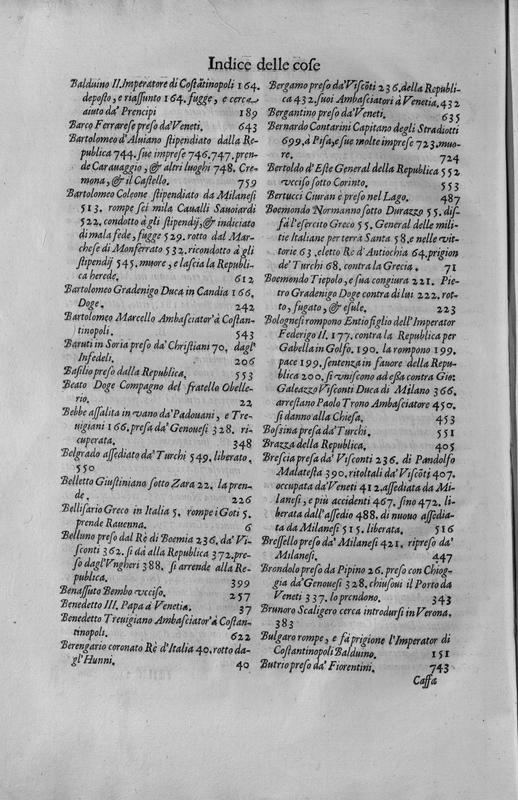 Indice delle cose
Balduino II. Imperatore di Costãtinopoli 164.
deposto, e riassunto 164. fugge, e cerca
aiuto da' Prencipi 189
Barco Ferrarese preso da' Veneti. 643
Bartolomeo d'Aluiano stipendiato dalla Re-
publica 744. sue imprese 746. 747. pren-
de Carauaggio, & altri luoghi 748. Cre-
mona, & il Castello. 759
Bartolomeo Coleone stipendiato da Milanesi
513. rompe sei mila Caualli Sauoiardi
522. condotto à gli stipendij, & indiciato
di mala fede, fugge 529. rotto dal Mar-
chese di Monferrato 532. ricondotto à gli
stipendij 545. muore, e lascia la Republi-
ca herede. 612
Bartolomeo Gradenigo Duca in Candia 166.
Doge. 242
Bartolomeo Marcello Ambasciator' à Costan-
tinopoli. 543
Baruti in Soria preso da' Christiani 70. dagl'
Infedeli. 206
Basilio preso dalla Republica. 553
Beato Doge Compagno del fratello Obelle-
rio. 22
Bebbe assalita in vano da' Padouani, e Tre-
uigiani 166. presa da' Genouesi 328. ri-
cuperata. 348
Belgrado assediato da' Turchi 549. liberato.
550
Belletto Giustiniano sotto Zara 22. la pren-
de. 226
Bellisario Greco in Italia 5. rompe i Goti 5.
prende Rauenna. 6
Belluno preso dal Rè di Boemia 236. da' Vi-
sconti 362. si dà alla Republica 372. pre-
so dagl'Vngheri 388. si arrende alla Re-
publica. 399
Benassuto Bembo vcciso. 257
Benedetto III. Papa à Venetia. 37
Benedetto Treuigiano Ambasciator' à Costan-
tinopoli. 622
Berengario coronato Rè d'Italia 40. rotto da-
gl'Hunni. 40
Bergamo preso da' Viscõti 236. della Republi-
ca 432. suoi Ambasciatori à Venetia. 432
Bergantino preso da' Veneti. 635
Bernardo Contarini Capitano degli Stradiotti
699. à Pisa, e sue molte imprese 723. muo-
re. 724
Bertoldo d'Este General della Republica 552
vcciso sotto Corinto. 553
Bertucci Ciuran è preso nel Lago. 487
Boemondo Normanno sotto Durazzo 55. dis-
fà l'esercito Greco 55. General delle mili-
tie Italiane per terra Santa 58. e nelle vit-
torie 63. eletto Rè d'Antiochia 64. prigion
de' Turchi 68. contra la Grecia. 71
Boemondo Tiepolo, e sua congiura 221. Pie-
tro Gradenigo Doge contra di lui 222. rot-
to, fugato, & esule. 223
Bolognesi rompono Entio figlio dell'Imperator
Federigo II. 177. contra la Republica per
Gabella in Golfo. 190. la rompono 199.
pace 199. sentenza in fauore della Repu-
blica 200. si vniscono ad essa contra Gio:
Galeazzo Visconti Duca di Milano 366.
arrestano Paolo Trono Ambasciatore 450.
si danno alla Chiesa. 453
Bossina presa da' Turchi. 551
Brazza della Republica. 405
Brescia presa da' Visconti 236. di Pandolfo
Malatesta 390. ritoltali da' Viscõti 407.
occupata da' Veneti 412. assediata da Mi-
lanesi, e più accidenti 467. fino 472. li-
berata dall'assedio 488. di nuouo assedia-
ta da Milanesi 515. liberata. 516
Bressello preso da' Milanesi 421. ripreso da'
Milanesi. 447
Brondolo preso da Pipino 26. preso con Chiog-
gia da' Genouesi 328. chiusoui il Porto da
Veneti 337. lo prendono. 343
Brunoro Scaligero cerca introdursi in Verona.
383
Bulgaro rompe, e fà prigione l'Imperator di
Costantinopoli Balduino. 151
Butrio preso da' Fiorentini. 743
Cassa